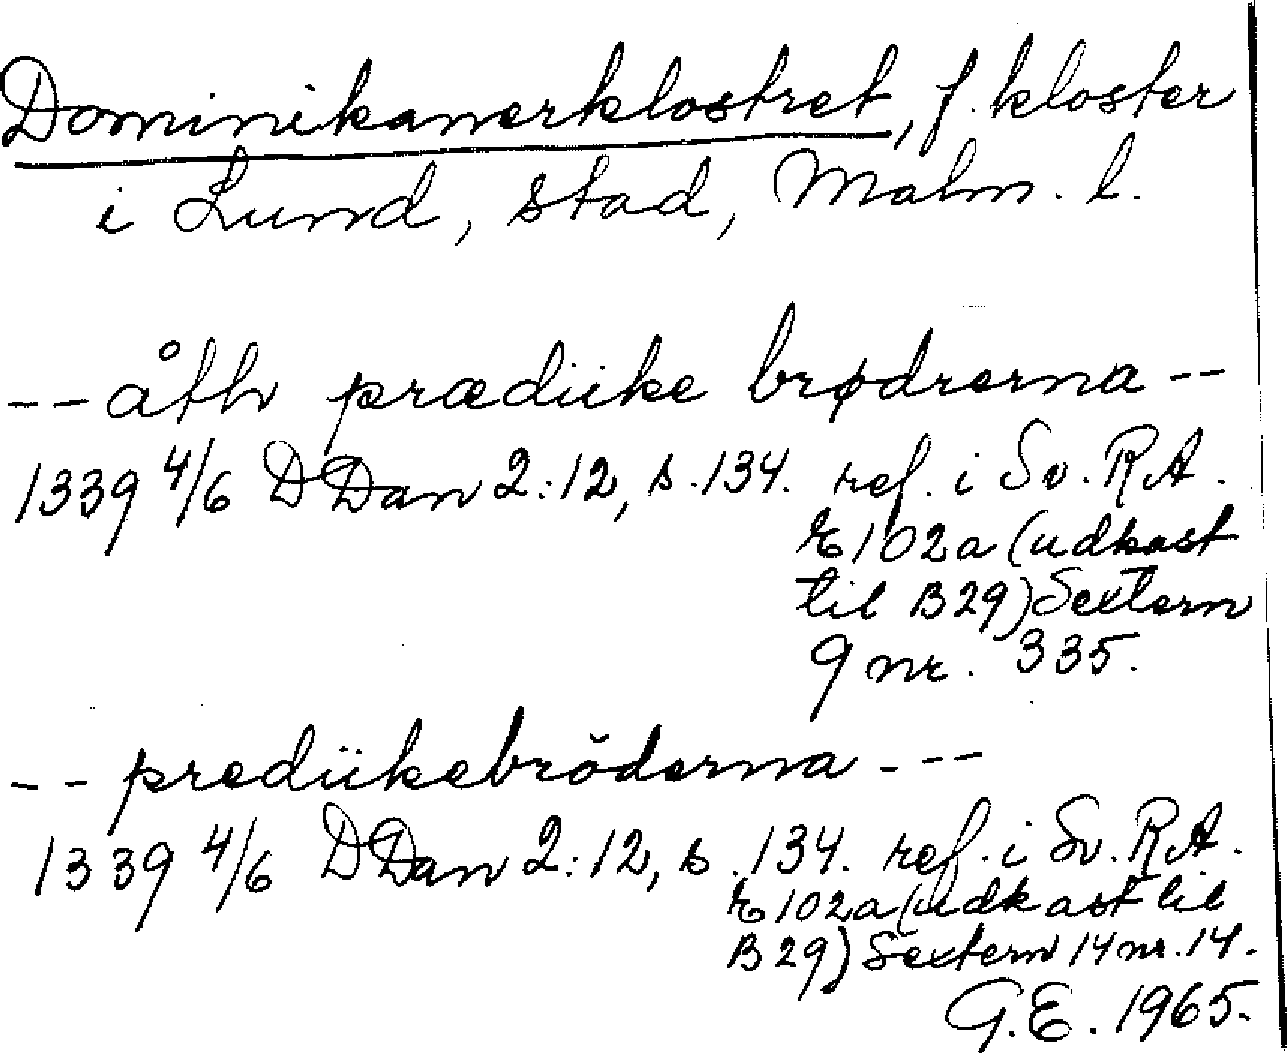 Dominikanerklostret, f. kloster
i Lund, stad, Malm. l.
--åth prædiike brødrerna--
1339 4/6 DDan 2:12, s. 134. ref. i Sv. R.A.
E 102a (udkast
til B29) Sextern
9 nr. 335.
-- prediikebröderna ---
1339 4/6 DDan 2:12, s. 134. ref. i Sv. R.A.
E 102a (udkast til
B 29) Sextern 14 nr. 14.
G.E. 1965.